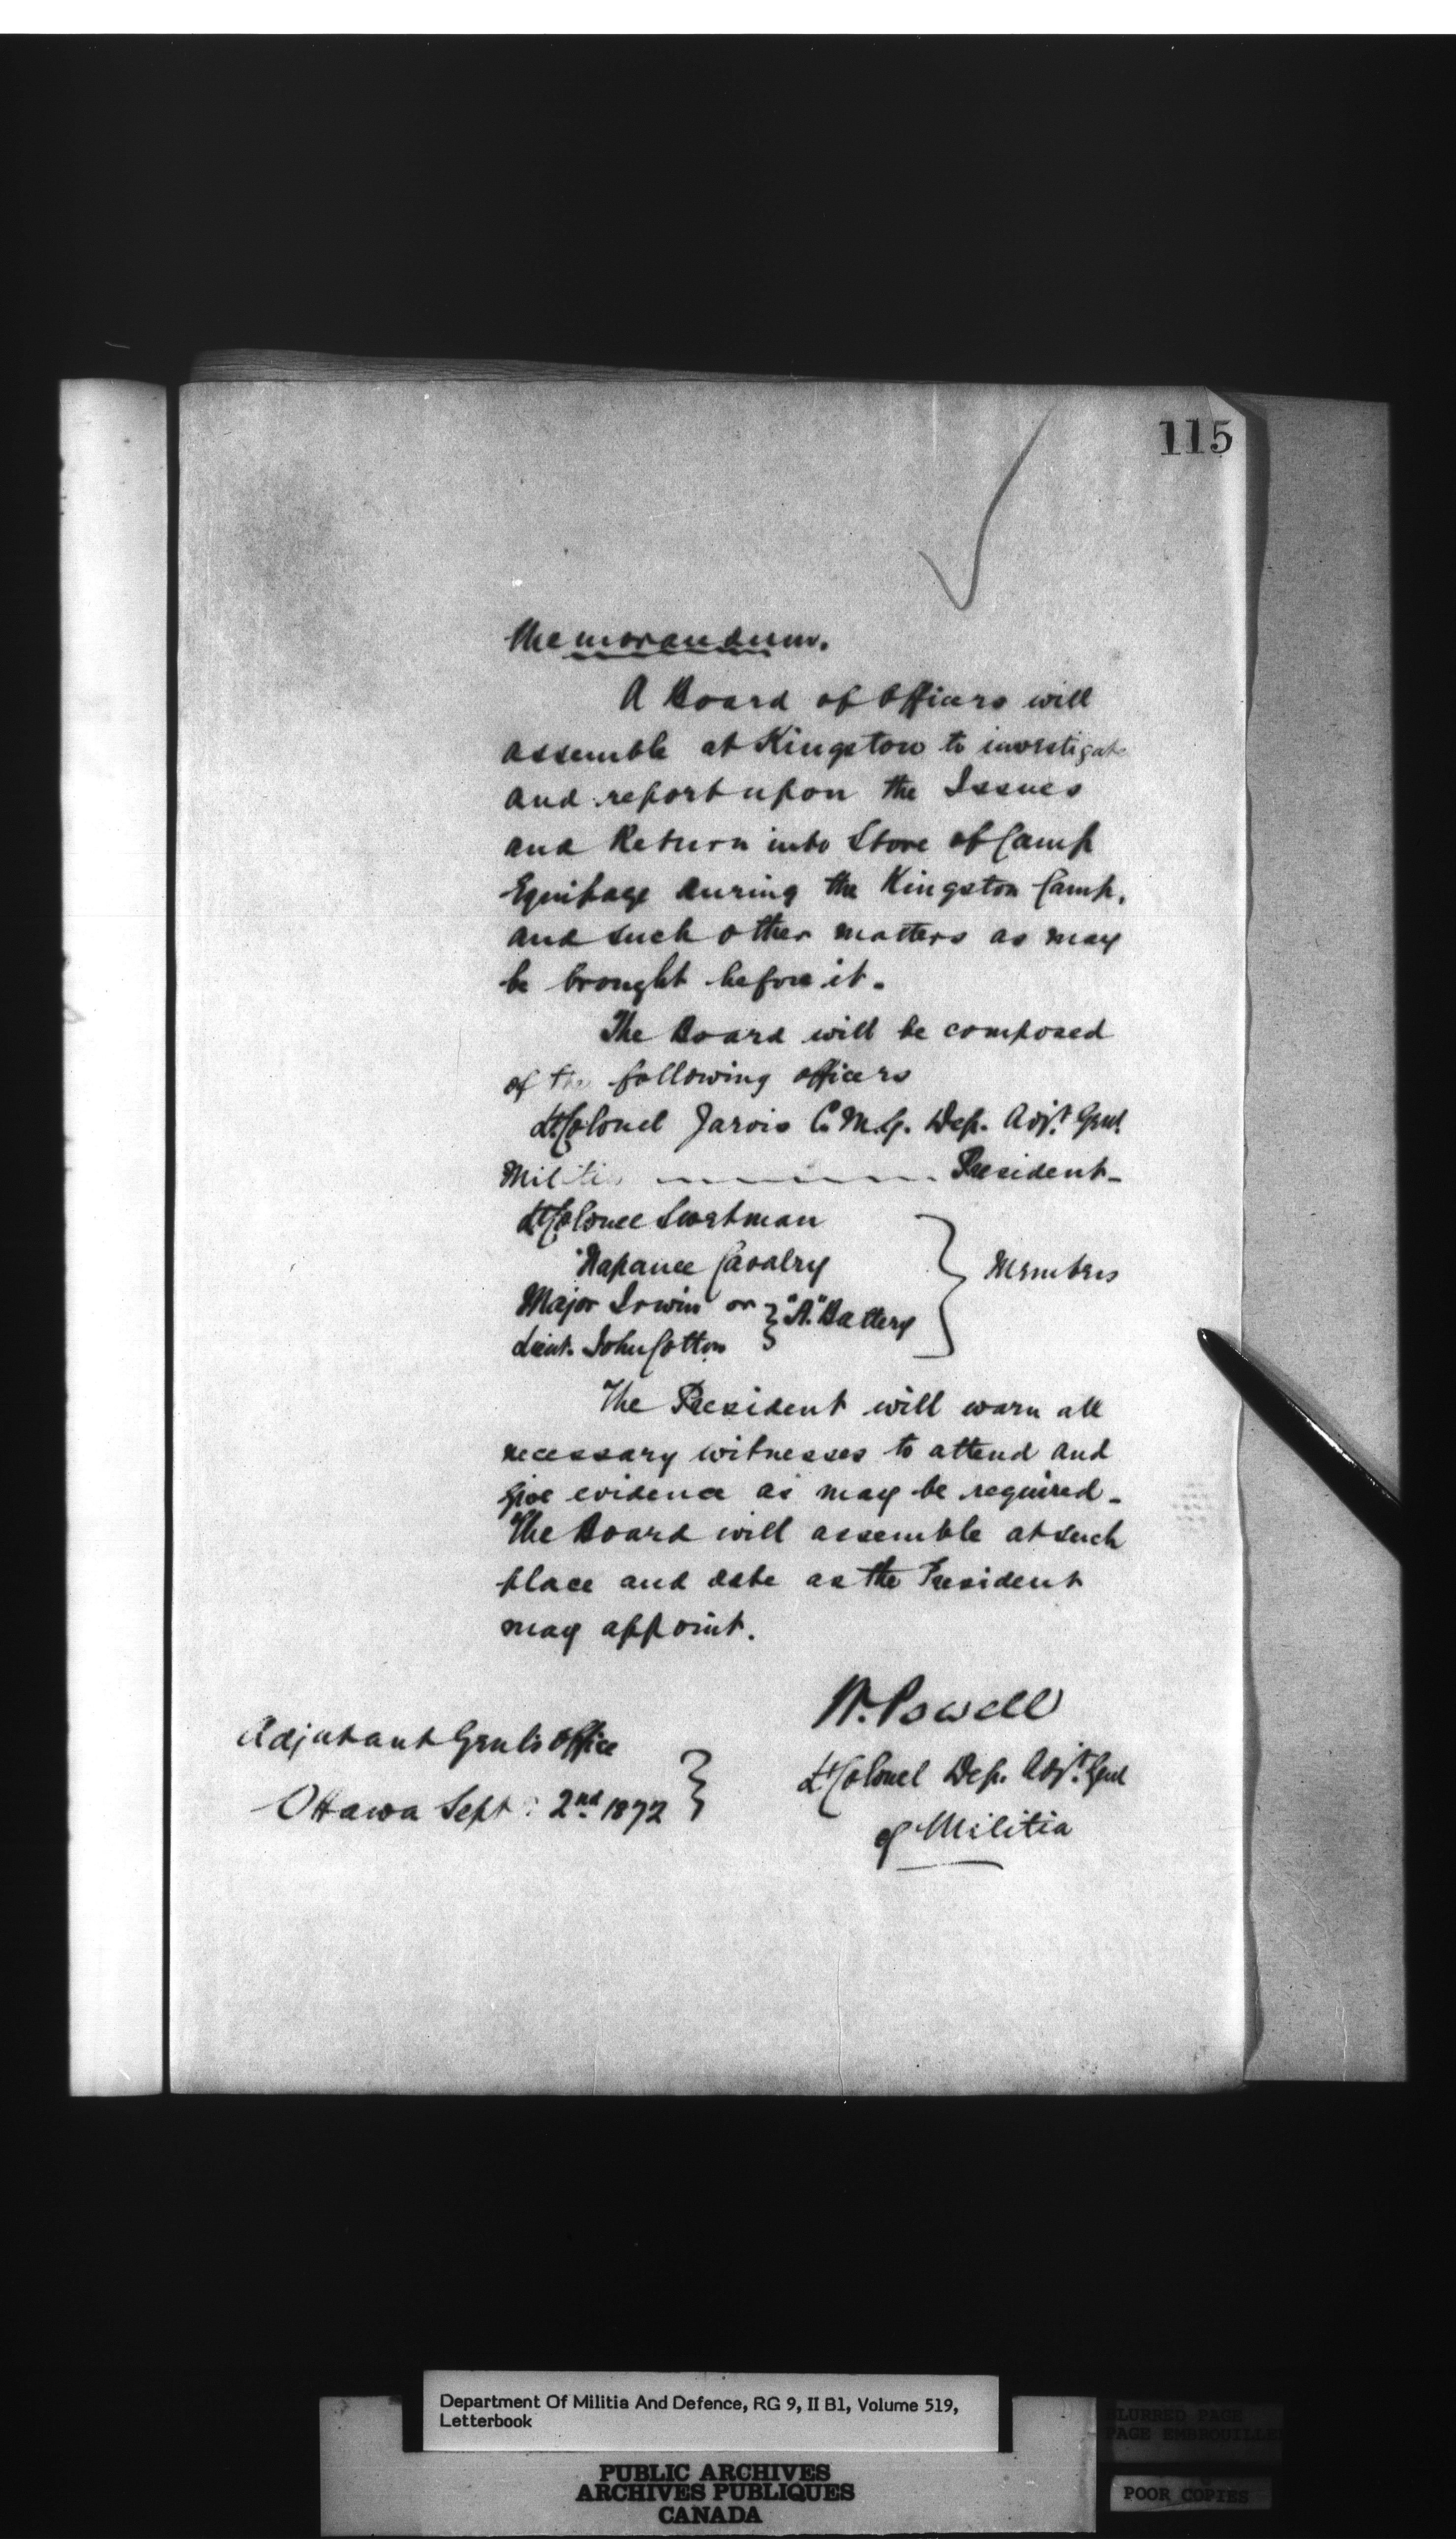 115
Memorandum.
A Board of Officers will
assemble at Kingston to investigate
and report upon the Issues
and Return into Store of Camp
Equipage during the Kingston Camp,
and such other matters as may
be brought before it.
The Board will be composed
of the following officers
Lt Colonel Jarvis C.M.G. Dep. Adjt. Genl.
Militia President
Lt Colonel
Napanee Cavalry
Members
Major Irwin or
"A" Battery
Lieut. John Cotton
The President will warn all
necessary witnesses to attend and
give evidence as may be required.
The Board will assemble at such
place and date as the President
may appoint.
W. Powell
Lt Colonel Dep. Adjt. Genl
of Militia
Adjutant Genl's Office
Ottawa Sept: 2nd 1872
Department Of Militia And Defence, RG 9, II B1, Volume 519,
Letterbook
PUBLIC ARCHIVES
ARCHIVES PUBLIQUES
CANADA
BLURRED PAGE
PAGE EMBROUILLE
POOR COPIES